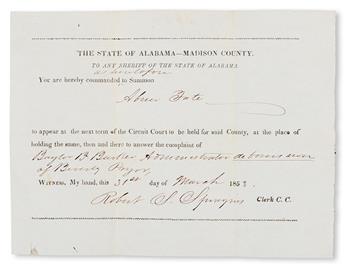 THE STATE OF ALABAMA—MADISON COUNTY.
TO ANY SHERIFF OF THE STATE OF ALABAMA
as heretofore
You are hereby commanded to Summon
Abner Tate
to appear at the next term of the Circuit Court to be held for said County, at the place of
holding the same, then and there to answer the complaint of
Baylor B Barker Administrator de bonis non
of Beverly Pryor
WITNESS, My hand, this 31st day of March 185
Robert S. Clerk C. C.